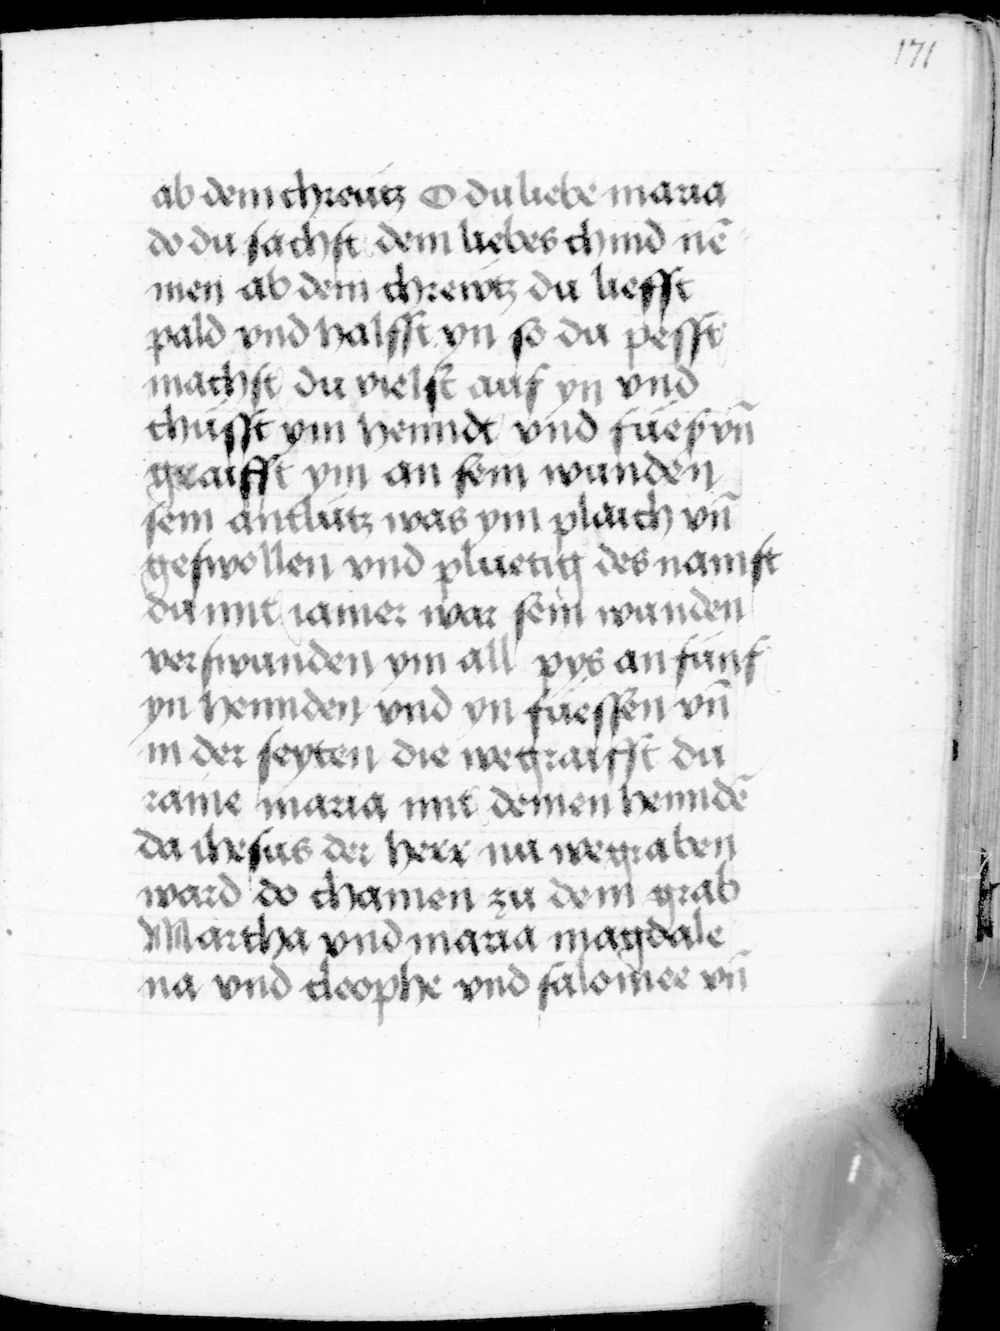 171
ab dem chreutz O du liebe maria
do du sachst dem liebes chind nē
men ab dem chrewtz du liefst
pald vnd halfst yn so du pesst
machst du vielst auf yn vnd
chusst ym henndt vnd fueß vn̄
graifft ym an sein wunden
sein antlutz was ym plaich vn̄
geswollen vnd pluetig des namst
du mit iamer war sein wunden
verswunden ym all pys an funf
yn hennden vnd yn fuessen vn̄
in der seyten die wegraifst du
raine maria mit deinen henndē
da ihesus der herr nu wegraben
ward do chamen zu dem grab
Martha vnd maria magdale
na vnd cleophe vnd salomee vn̄